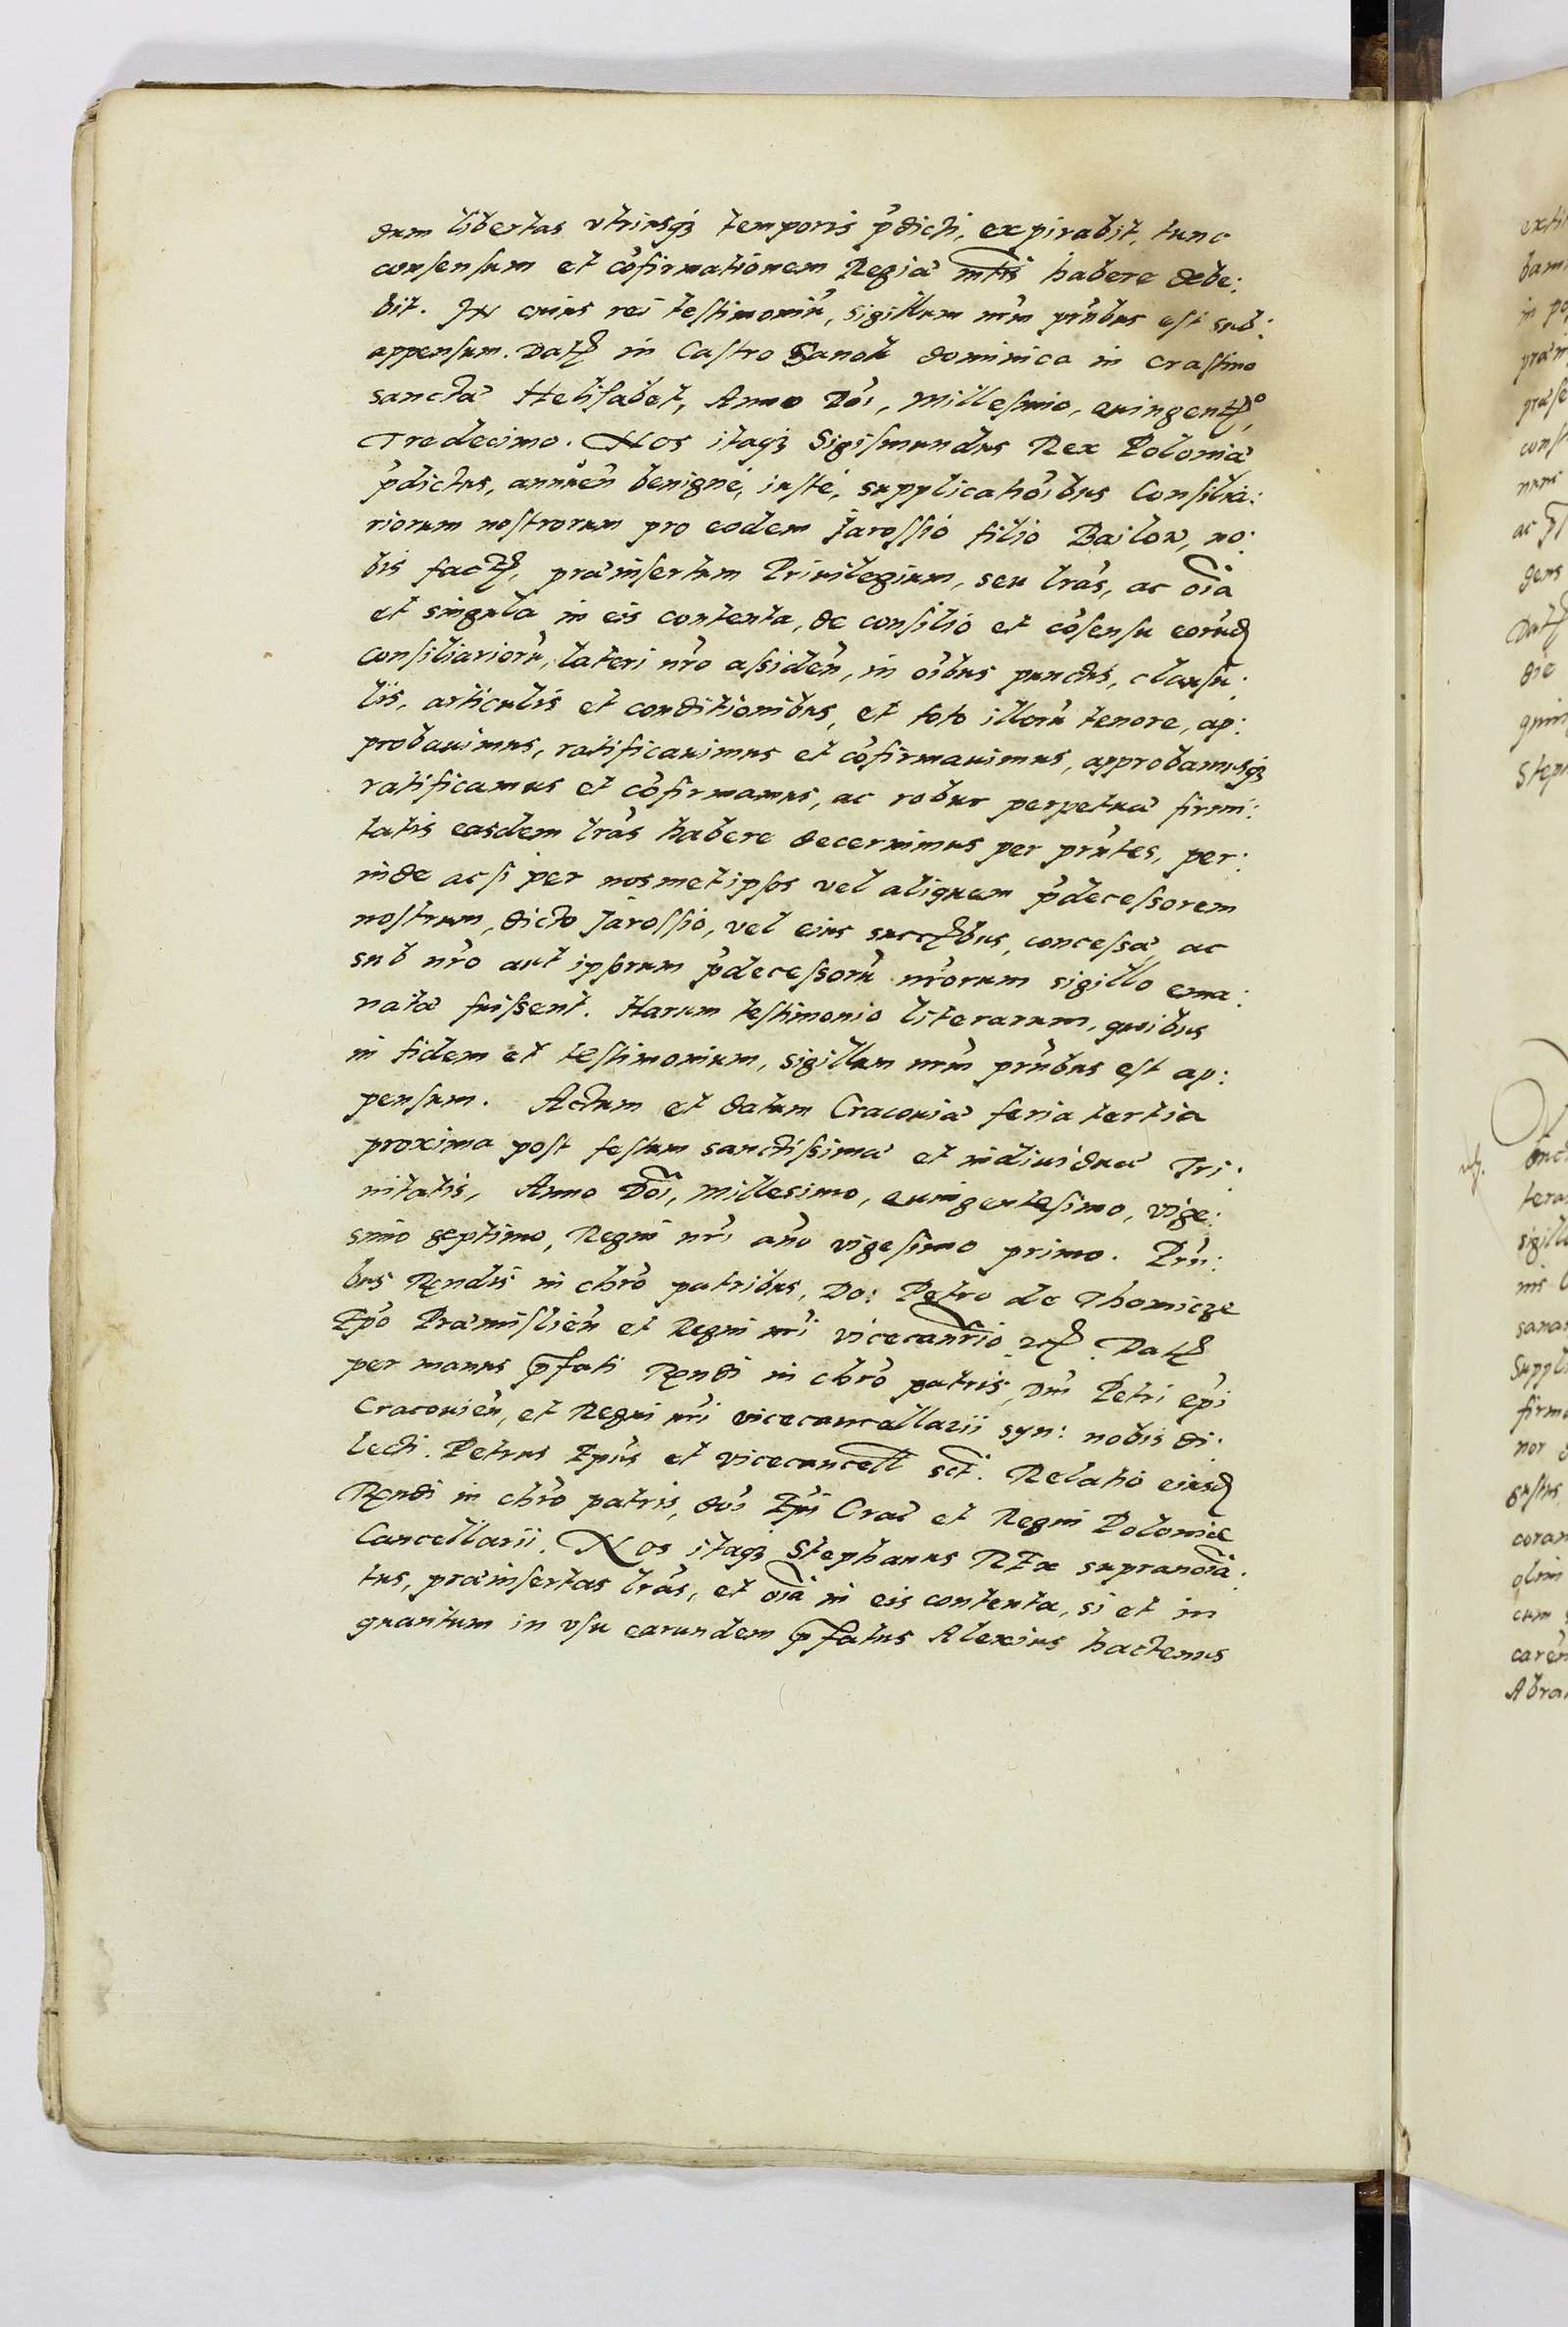 dum libertas vtriusqꝫ temporis p̃dicti, expirabit, tunc
consensum et cõfirmationem Regiæ mt̃is habere debe:
bit. In cuius rei testimoniũ, sigillum nr̃m pñtibus est sub:
appensum. Datꝫ in Castro Sanok dominica in crastino
sanctæ Helisabet, Anno Dñi, Millesimo, quingentꝫº,
Tredecimo. Nos itaqꝫ Sigismundus Rex Poloniæ
p̃dictus, annuẽn benignè, iustè, supplicatiõibus Consilia:
riorum nostrorum pro eodem Jarossio filio Bailow, no:
bis factꝫ, præinsertum Priuilegium, seu lr̃as, ac oĩa
et singula in eis contenta, de consilio et cõsensu eorũd
consiliariorũ, lateri nr̃o assideñ, in oĩbus punctis, clausu:
lis, articulis et conditionibus, et toto illorũ tenore, ap:
probauimus, ratificauimus et cõfirmauimus, approbamusqꝫ
ratificamus et cõfirmamus, ac robur perpetuæ firmi:
tatis easdem lr̃as habere decernimus per pñtes, per:
inde ac si per nosmet ipsos vel aliquem p̃decessorem
nostrum, dicto Jarossio, vel eius succꝫbus, concessæ, ac
sub nr̃o aut ipsorum p̃decessorũ nr̃orum sigillo ema:
natæ fuissent. Harum testimonio literarum, quibus
in fidem et testimonium, sigillum nr̃m pñtibus est ap:
pensum. Actum et datum Cracouiæ feria tertia
proxima post festum sanctissimæ et indiuiduæ Tri:
nitatis, Anno Dñi, Millesimo, quingentesimo, vige:
simo septimo, Regni nr̃i año vigesimo primo. Pñti:
bus Rẽndis in chr̃o patribus, Do: Petro de Thomicze
Ep̃o Præmislieñ et Regni nr̃i vicecanr̃io ꝛcꝫ. Datꝫ
per manus p̃fati Rẽndi in chr̃o patris, Dñi Petri ep̃i
Cracouieñ, et Regni nr̃i vicecancellarii syn: nobis di:
lecti. Petrus Ep̃us et vicecancell sc̃t. Relatio eiusd
Rẽndi in chr̃o patris, dñi Ep̃i Crac̃ et Regni Poloniæ
Cancellarii. Nos itaqꝫ Stephanus REx supranoĩa:
tus, præinsertas lr̃as, et oĩa in eis contenta, si et in
quantum in vsu earundem p̃fatus Alexius hactenus